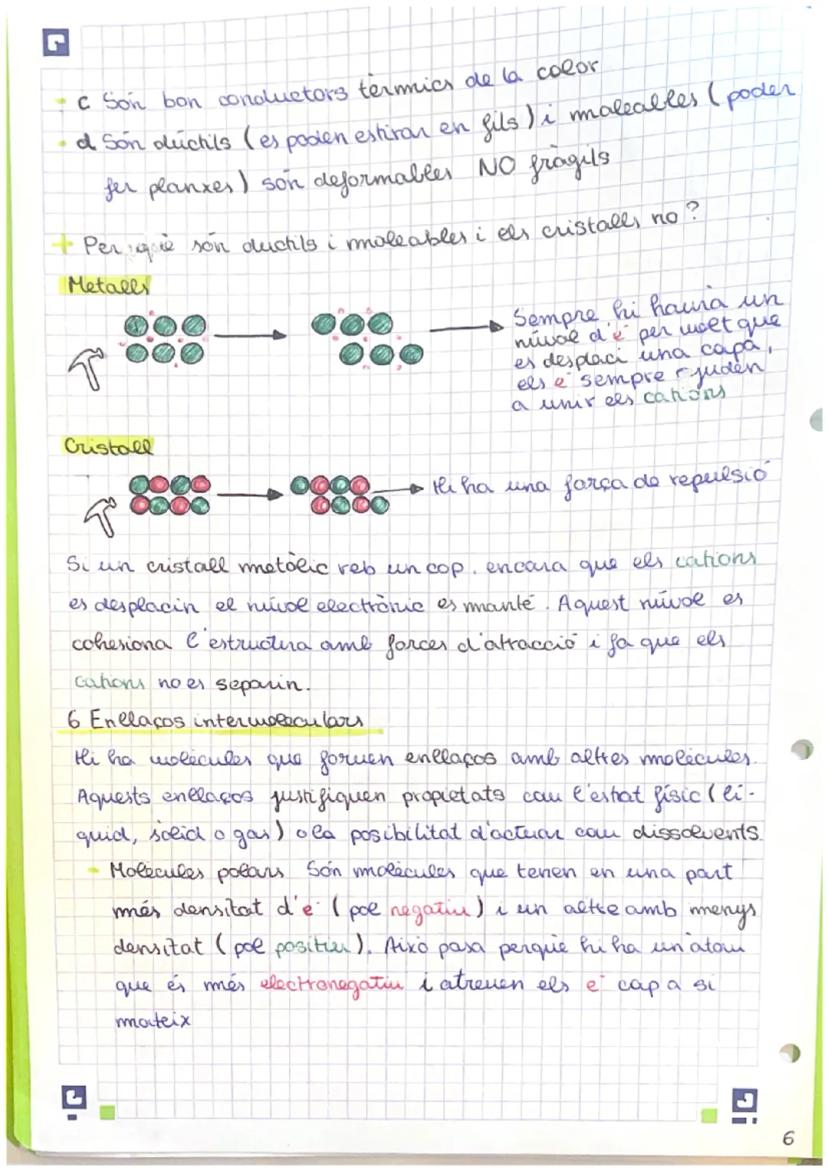 c Són bon conductors tèrmics de la calor
d Són dúctils (es poden estirar en fils) i maleables (poden
fer planxes) són deformables NO fràgils
+ Per què són ductils i maleables i els cristalls no?
Metalls
Sempre hi haurà un
núvol d'e⁻ per molt que
es desplaci una capa,
els e⁻ sempre ajuden
a unir els cations
Cristall
Hi ha una força de repulsió
Si un cristall metàlic reb un cop, encara que els cations
es desplacin el núvol electrònic es manté. Aquest núvol es
cohesiona l'estructura amb forces d'atracció i fa que els
cations no es separin.
6 Enllaços intermoleculars
Hi ha molècules que formen enllaços amb altres molècules.
Aquests enllaços justifiquen propietats com l'estat físic (lí-
quid, sòlid o gas) o la posibilitat d'actuar com dissolvents.
Molècules polars Són molècules que tenen en una part
més densitat d'e⁻ (pol negatiu) i un altre amb menys
densitat (pol positiu). Això pasa perquè hi ha un àtom
que és més electronegatiu i atreuen els e⁻ cap a si
mateix
6